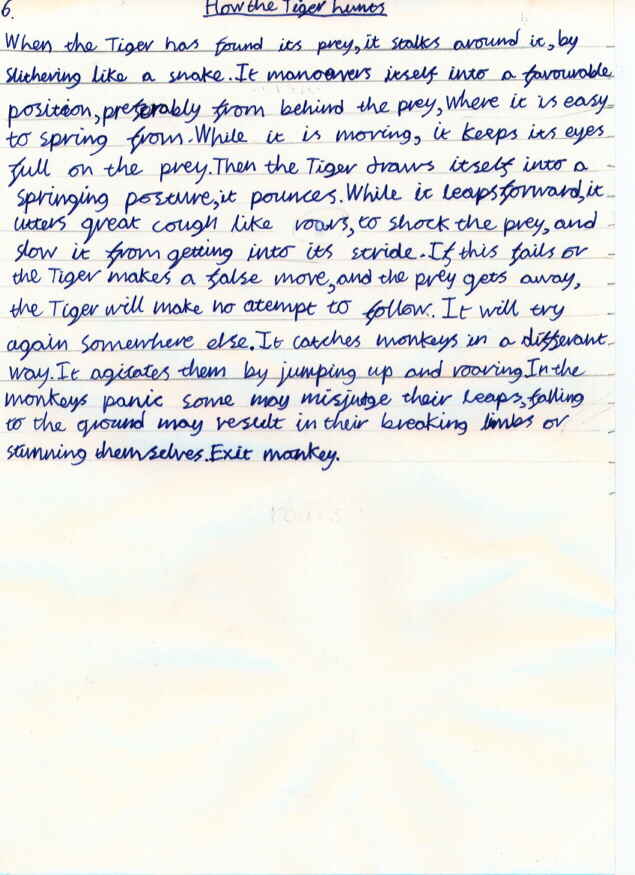 6.
How the Tiger hunts
When the Tiger has found its prey, it stalks around it, by
slithering like a snake. It manoovers itself into a favourable
position, preferably from behind the prey, Where it is easy
to spring from. While it is moving, it keeps its eyes
full on the prey. Then the Tiger draws itself into a
springing posture, it pounces. While it leaps forward, it
utters great cough like roars, to shock the prey, and
slow it from getting into its stride. If this fails or
the Tiger makes a false move, and the prey gets away,
the Tiger will make no atempt to follow. It will try
again somewhere else. It catches monkeys in a differant
way. It agitates them by jumping up and roaring. In the
monkeys panic some may misjudge their leaps, falling
to the ground may result in their breaking limbs or
stunning themselves. Exit monkey.
roars